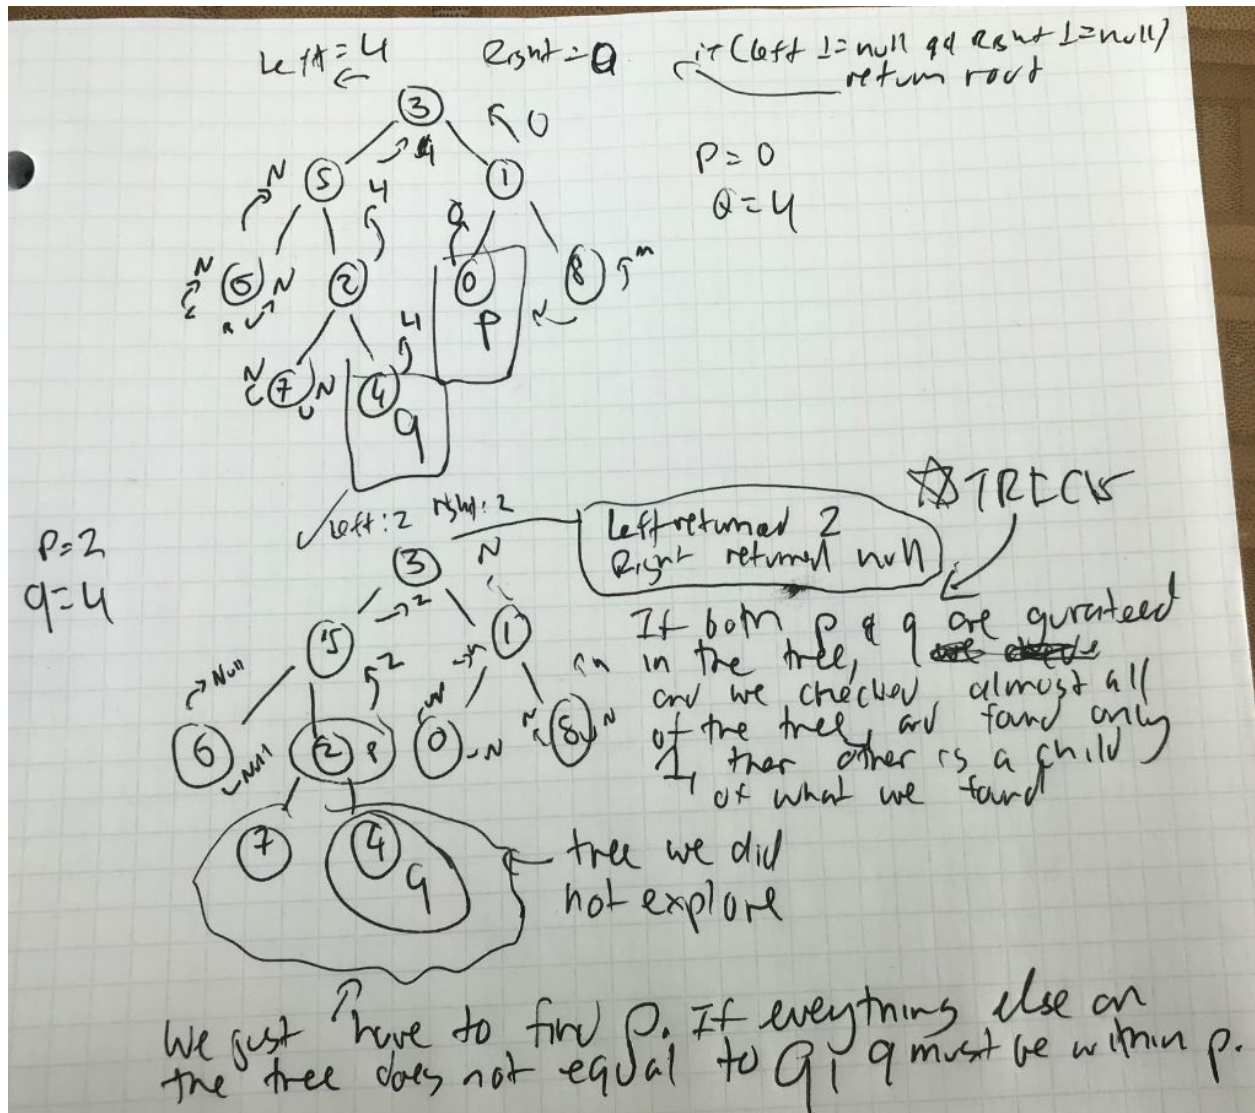 Left = 4 Right = 0 if (left != null && Right != null)
return root
3
0
4
P = 0
Q = 4
N
5
4
1
0
N
6
N
2
0
8
N
P
4
N
7
N
4
q
☆ TRICK
left: 2 right: 2
P=2
q=4
Left returned 2
Right returned null
N
3
2
If both p & q are gurateed
5
1
in the tree,
Null
2
and we checked almost all
6
2
P
0
N
N
8
N
of the tree, and found only
Null
1, ther other is a child
of what we found
7
4
q
tree we did
not explore
We just have to find p. If eveything else on
the tree does not equal to q, q must be within p.